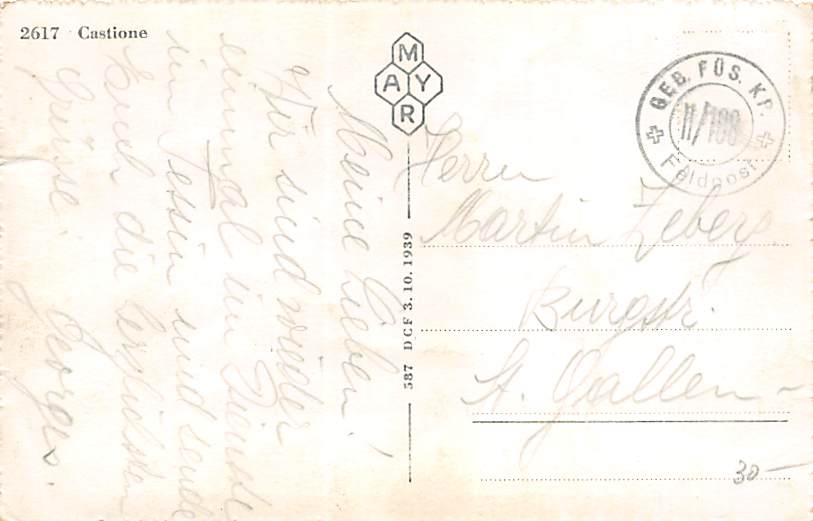 2617 Castione
MAYR
587 DCF 3.10.1939
GEB. FÜS. KP.
II/108
Feldpost
Meine Lieben!
Wir sind wieder
einmal im Dienste
im Tessin und sende
Euch die herzlichsten
Grüsse.
Georges.
Herrn
Martin
Burgstr.
St. Gallen –
30–